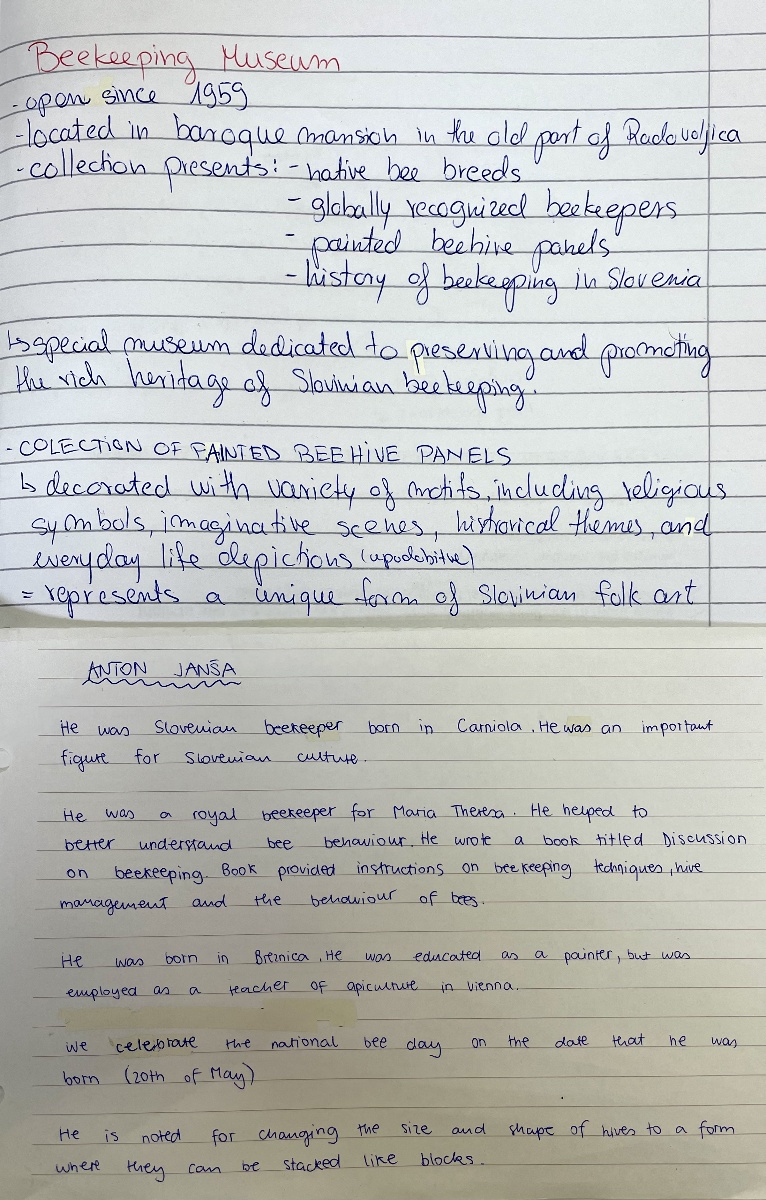 Beekeeping Museum
- open since 1959
- located in baroque mansion in the old part of Radovoljica
- collection presents: - native bee breeds
- globally recognized beekeepers
- painted beehive panels
- history of beekeeping in Slovenia
↳ special museum dedicated to preserving and promoting
the rich heritage of Slovinian beekeeping.
- COLECTION OF PAINTED BEEHIVE PANELS
↳ decorated with variety of motifs, including religious
symbols, imaginative scenes, historical themes, and
everyday life depictions (upodobitve)
= represents a unique form of Slovinian folk art
ANTON JANŠA
He was Slovenian beekeeper born in Carniola. He was an important
figure for Slovenian culture.
He was a royal beekeeper for Maria Theresa. He helped to
better understand bee behaviour. He wrote a book titled Discussion
on beekeeping. Book provided instructions on beekeeping techniques, hive
management and the behaviour of bees.
He was born in Breznica. He was educated as a painter, but was
employed as a teacher of apiculture in Vienna.
We celebrate the national bee day on the date that he was
born (20th of May)
He is noted for changing the size and shape of hives to a form
where they can be stacked like blocks.